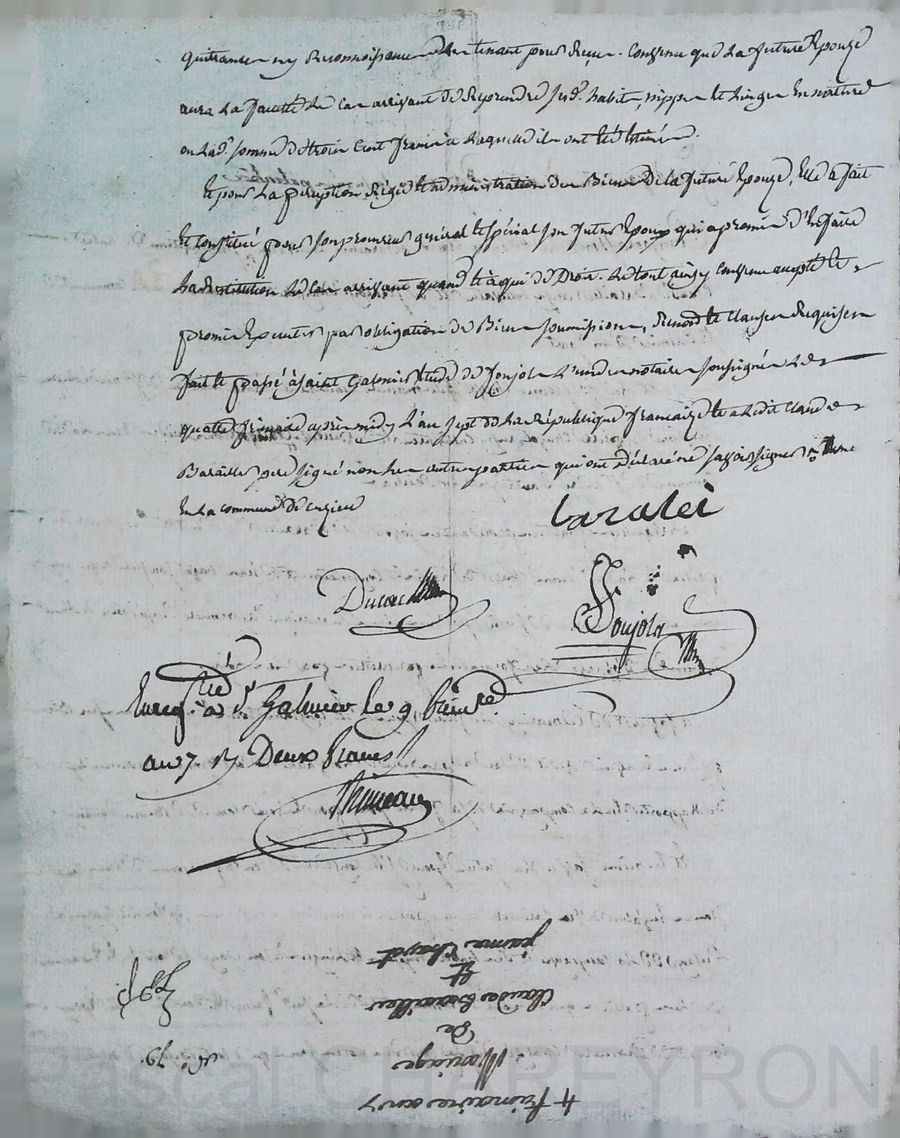 quittance en reconnoissance tenant pour reçu. Convenu que La future Epouze
aura La faculté Le cas arrivant de Reprendre sesd. habits, nippes et Linges En nature
ou Lad. somme de trois Cent francs à Laquelle ils ont été Estimés.
Et pour La perception Régie et administration des Biens De la future Epouze, Elle a fait
Et constitué pour son procureur général et spécial son futur Epoux qui a promis d'En faire
La Restitution Le Cas arrivant quand et à qui de Droit. Le tout ainsy Convenu accepté et
promis Exécuter par obligation de Biens soumissions, Renond. et Clauses Requises
fait et passé à saint Galmier Etude de Jonjol L'un des notaires soussignés Le
quatre frimaire après midy L'an sept de La République française et a Ledit Claude
Barailler signé non Les autres parties qui ont déclaré ne savoir signer
En La commune de Cuzieu
baralei
Ducar
Jonjol
Enreg.tré à St. Galmier Le 9 frimre.
an 7. R Deux francs

4 frimaire an 7
Mariage
De
Claude Barailler
Et
jeanne
No. 79.